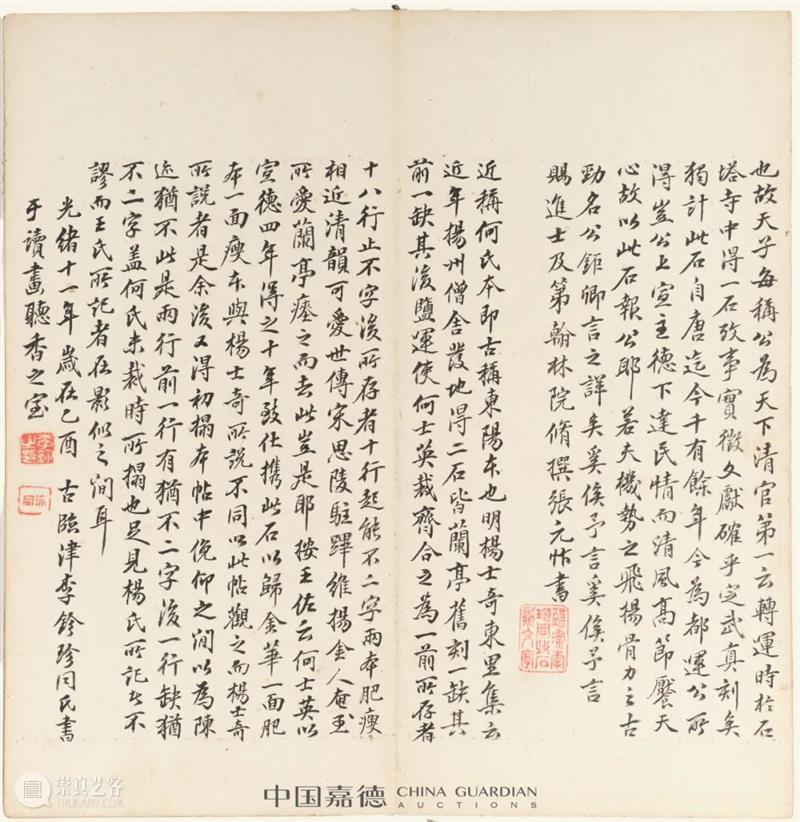 也故天子每稱公為天下清官第一云轉運時於石
塔寺中得一石攷事實徵文獻確乎定武真刻矣
獨計此石自唐迄今千有餘年今為都運公所
得豈公上宣主德下達民情而清風高節饜天
心故以此石報公耶若夫機勢之飛揚骨力之古
勁名公鉅卿言之詳矣奚俟予言奚俟予言
賜進士及第翰林院脩撰張元忭書
近稱何氏本即古稱東陽本也明楊士奇東里集云
近年揚州僧舍發地得二石皆蘭亭舊刻一缺其
前一缺其後鹽運使何士英裁齊合之為一前所存者
十八行止不字後所存者十行起能不二字兩本肥瘦
相近清韻可愛世傳宋思陵駐蹕維揚金人奄至
所愛蘭亭瘞之而去此豈是耶按王佐云何士英以
宣德四年得之十年致仕携此石以歸金華一面肥
本一面瘦本與楊士奇所說不同以此帖觀之而楊士奇
所說者是余後又得初搨本帖中俛仰之間以為陳
迹猶不此是兩行前一行有猶不二字後一行缺猶
不二字盖何氏未裁時所搨也足見楊氏所記者不
謬而王氏所記者在影似之間耳
光緒十一年歲在乙酉古臨津李鈐珍同氏書
于讀畫聽香之室
崇真艺客
TRUEART.COM
中国嘉德 CHINA GUARDIAN
AUCTIONS